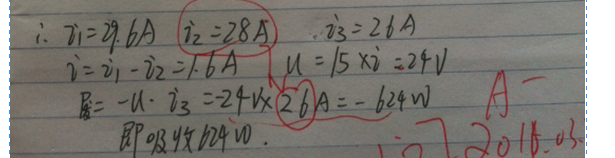 ∴ i₁=29.6A i₂=28A i₃=26A
i=i₁-i₂=1.6A u=15×i=24V
=-u·i₃=-24V×26A=-624W A-
即吸收624W. 2018.03